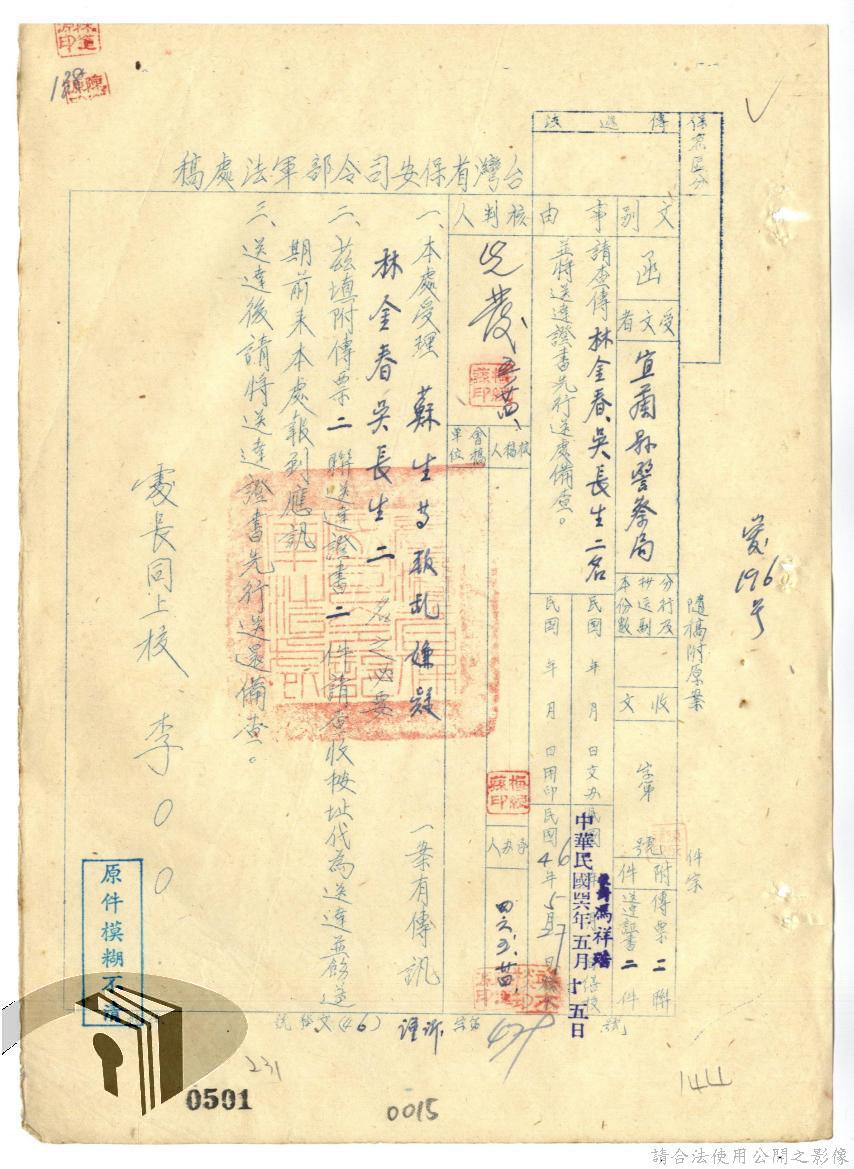 保密區分
傳遞法
隨稿附原案 件宗
台灣省保安司令部軍法處稿
文別 函
受文者 宜蘭縣警察局
分行及抄送副本份數
收文 字第 號
附件 傳票二聯 送達証書二件
事由 請查傳林金春、吳長生二名
並將送達證書先行送處備查。
民國 年 月 日文办
民國 年 月 日用印
民國46年5月
中華民國四六年五月十五日
馮祥瑞
核判人
核稿人
會稿單位
承办人
發文(46) 字第 號
一、本處受理 蘇生等叛乱嫌疑 一案有傳訊
林金春吳長生二 名之必要
二、茲填附傳票二聯送達證書二件請查收按址代為送達並飭遵
期前來本處報到應訊
三、送達後請將送達證書先行送還備查。
處長同上校 李○○
196號
原件模糊不清
231
0501
0015
144
請合法使用公開之影像